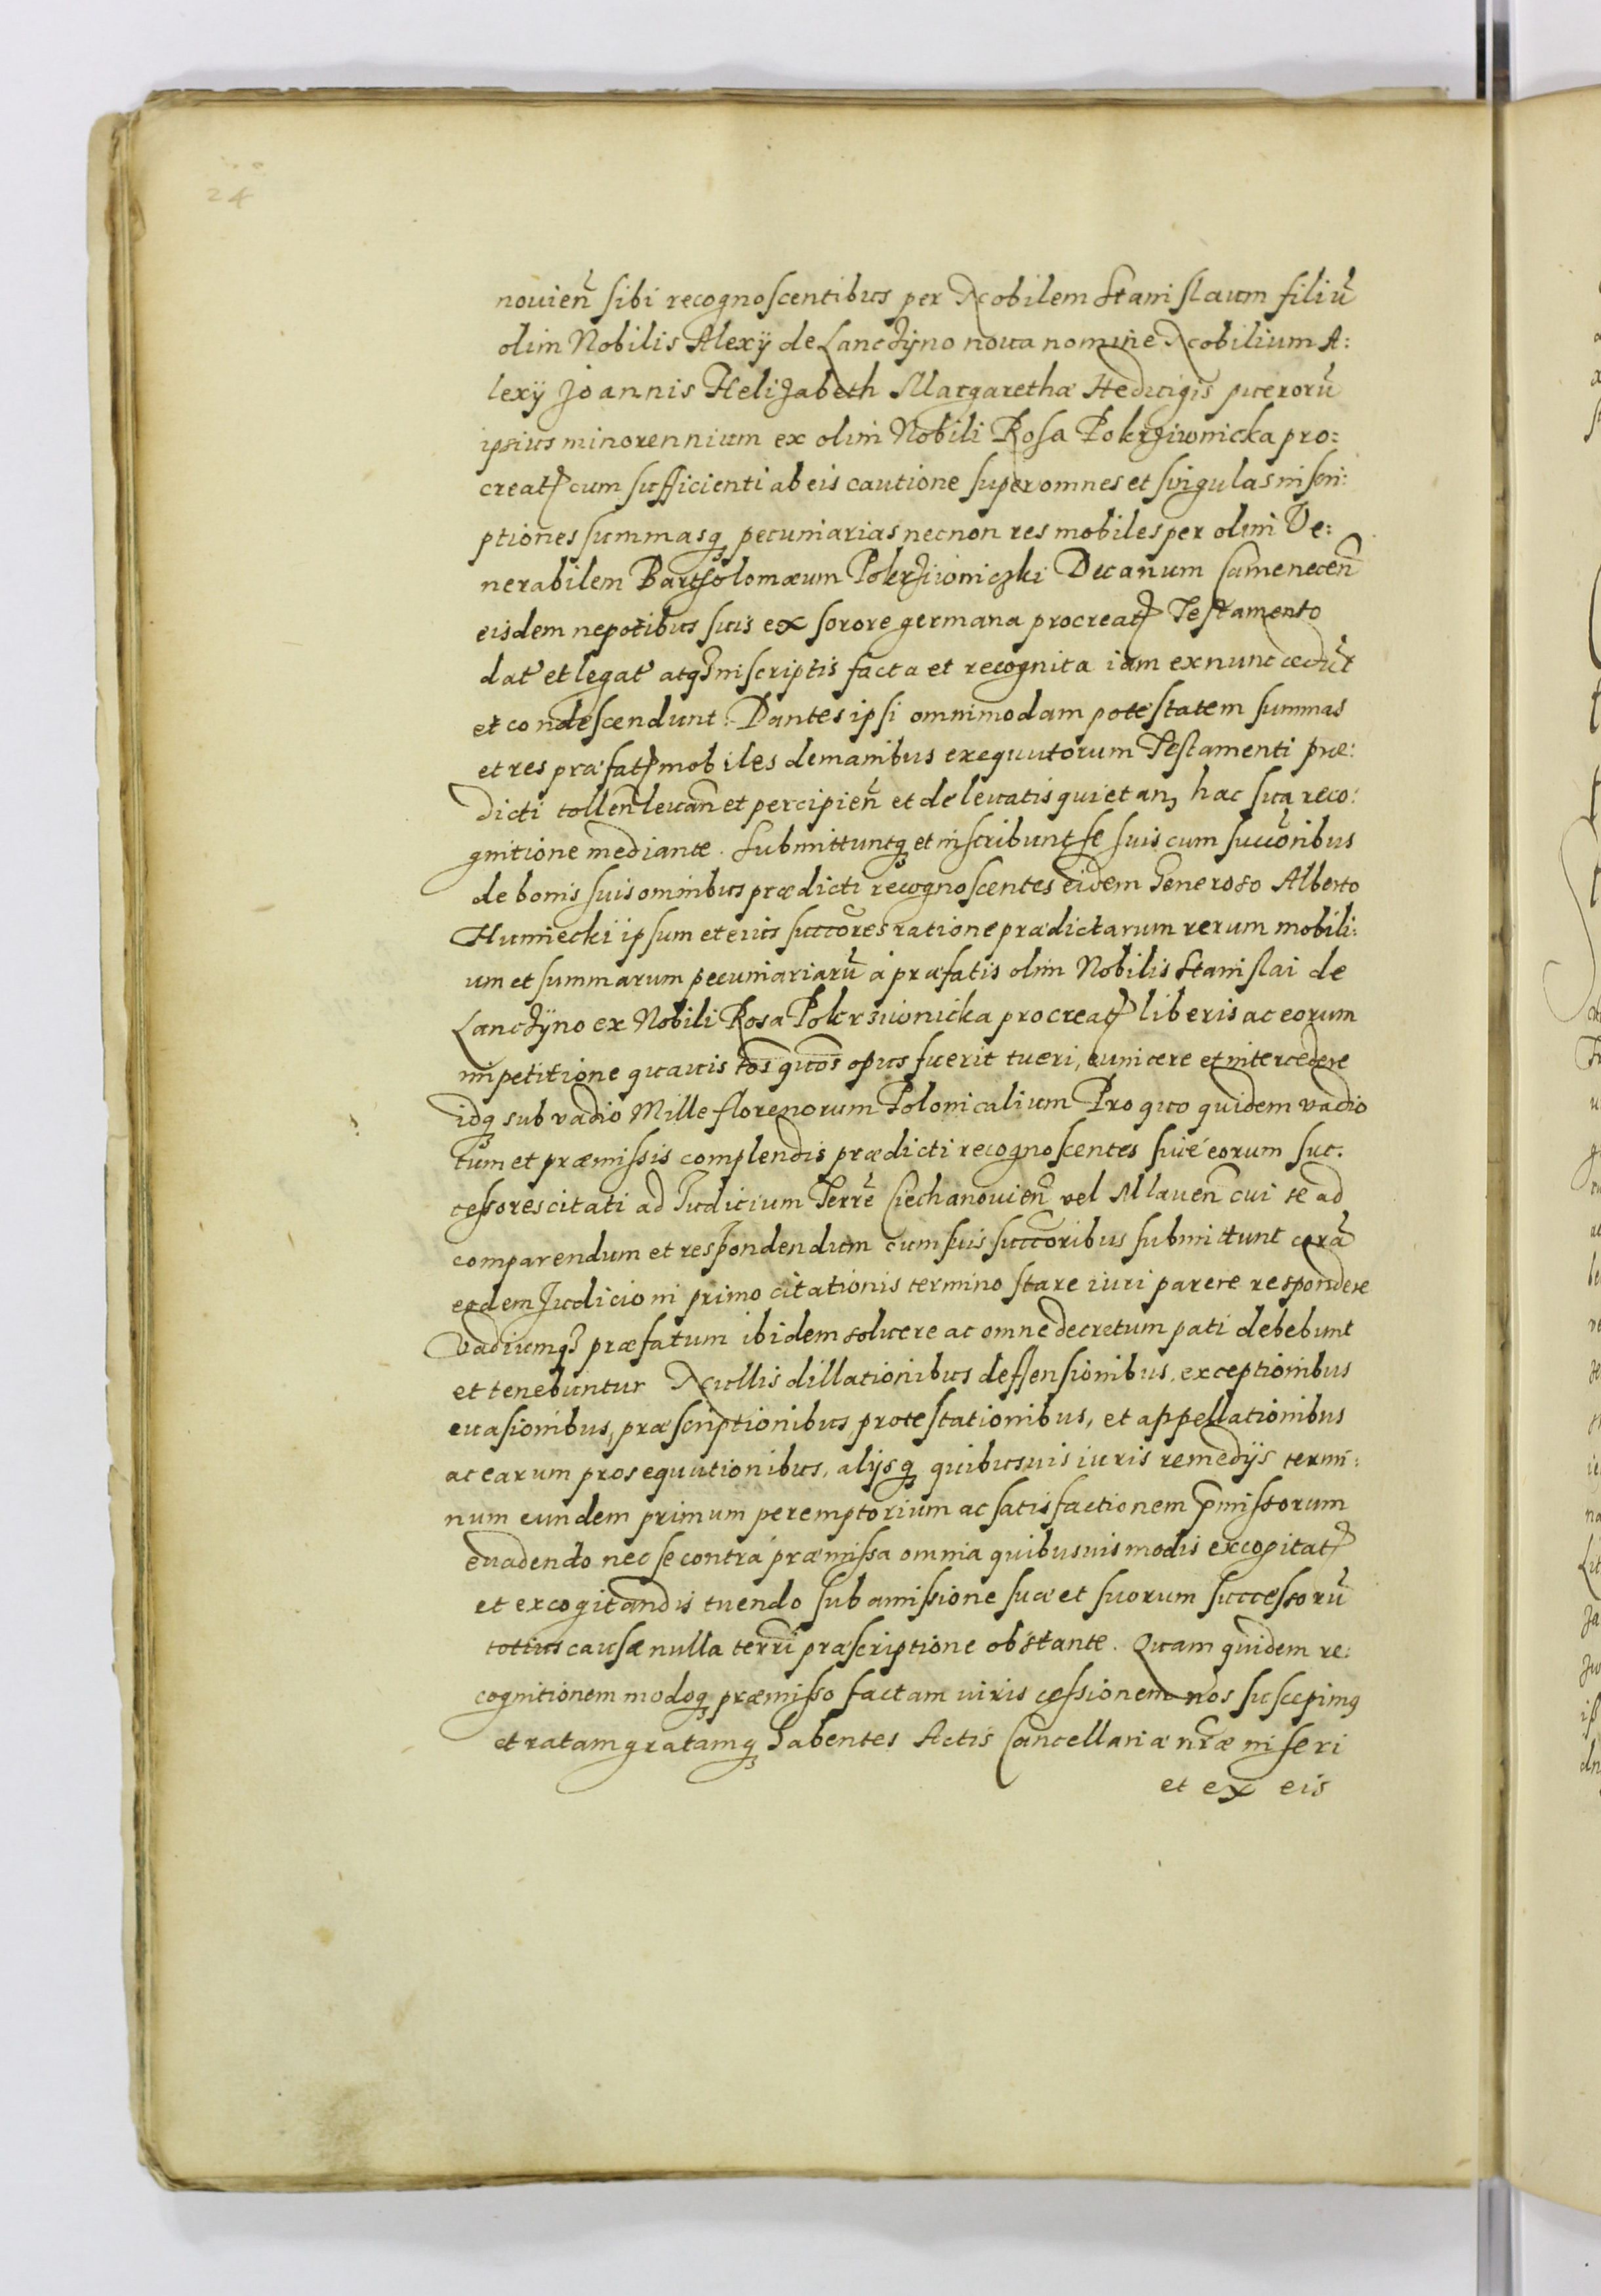 24
nouien̄ sibi recognoscentibus per Nobilem Stanislaum filiū
olim Nobilis Alexÿ de Lanczÿno noua nomine Nobilium A:
lexÿ Joannis Helizabeth Margarethæ Heduigis pueroru̅
ipsius minorennium ex olim Nobili Rosa Pokrziwnicka pro:
creatꝭ cum sufficienti ab eis cautione super omnes et singulas inscri:
ptiones summasqꝫ pecuniarias necnon res mobiles per olim Ve:
nerabilem Bartholomæum Pokrziwniczki Decanum Camenecen̄
eisdem nepotibus suis ex sorore germana procreatꝭ Testamento
dat' et legat' atqꝫ inscriptis facta et recognita iam exnunc cedūt
et condescendunt. Dantes ipsi omnimodam potestatem summas
et res præfatꝭ mobiles de manibus exequutorum Testamenti præ:
dicti tollen̄ leuan̄ et percipien̄ et de leuatis quietanꝫ hac sua reco:
gnitione mediante. Submittuntqꝫ et inscribunt se suis cum succōribus
de bonis suis omnibus prædicti recognoscentes eidem Generoso Alberto
Humiecki ipsum et eius succōres ratione prædictarum rerum mobili:
um et summarum pecuniariarū à præfatis olim Nobilis Stanislai de
Lanczÿno ex Nobili Rosa Pokrziwnicka procreatꝭ liberis ac eorum
impetitione quauis to̅s quo̅s opus fuerit tueri, euincere et intercedere
idqꝫ sub vadio Mille florenorum Polonicalium Pro quo quidem vadio
tum et præmissis complendis prædicti recognoscentes siue eorum suc:
cessores citati ad Judicium Terr̄e Ciechanouien̄ vel Mlauen̄ cui se ad
comparendum et respondendum cum suis succōribus submittunt corā
eodem Judicio in primo citationis termino stare iuri parere respondere
Vadiumqꝫ præfatum ibidem soluere ac omne decretum pati debebunt
et tenebuntur Nullis dillationibus deffensionibus, exceptionibus
euasionibus, præscriptionibus, protestationibus, et appellationibus
ac earum prosequutionibus, alijsqꝫ quibusuis iuris remedijs termi:
num eundem primum peremptorium ac satisfactionem p̄missorum
euadendo nec se contra præmissa omnia quibusuis modis excogitatꝭ
et excogitandis tuendo sub amissione suæ et suorum successorū
totius causæ nulla terrī præscriptione obstante. Quam quidem re:
cognitionem modoqꝫ præmisso factam iuris cessionem nos suscepimꝰ
et ratam gratamqꝫ habentes Actis Cancellariæ nr̄æ inseri
et ex eis